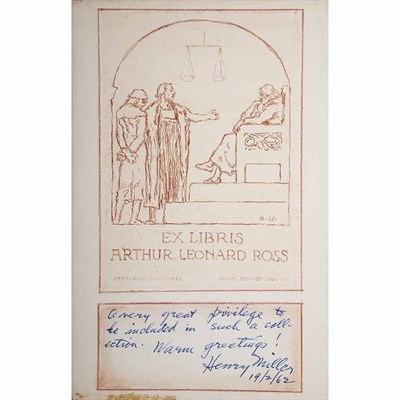 EX LIBRIS
ARTHUR LEONARD ROSS
A very great privilege to
be included in such a coll-
ection. Warm greetings!
Henry Miller
19/2/62